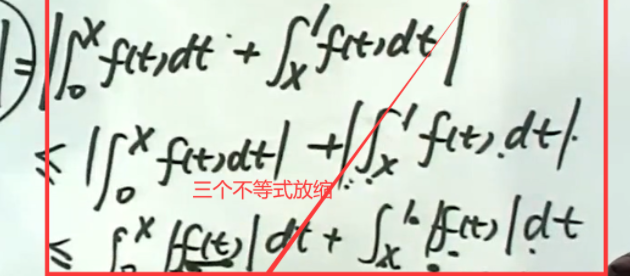 |=|∫₀ˣ f(t)dt + ∫ₓ¹ f(t)dt|
≤ |∫₀ˣ f(t)dt| + |∫ₓ¹ f(t)dt|
三个不等式放缩
≤ ∫₀ˣ |f(t)| dt + ∫ₓ¹ |f(t)| dt